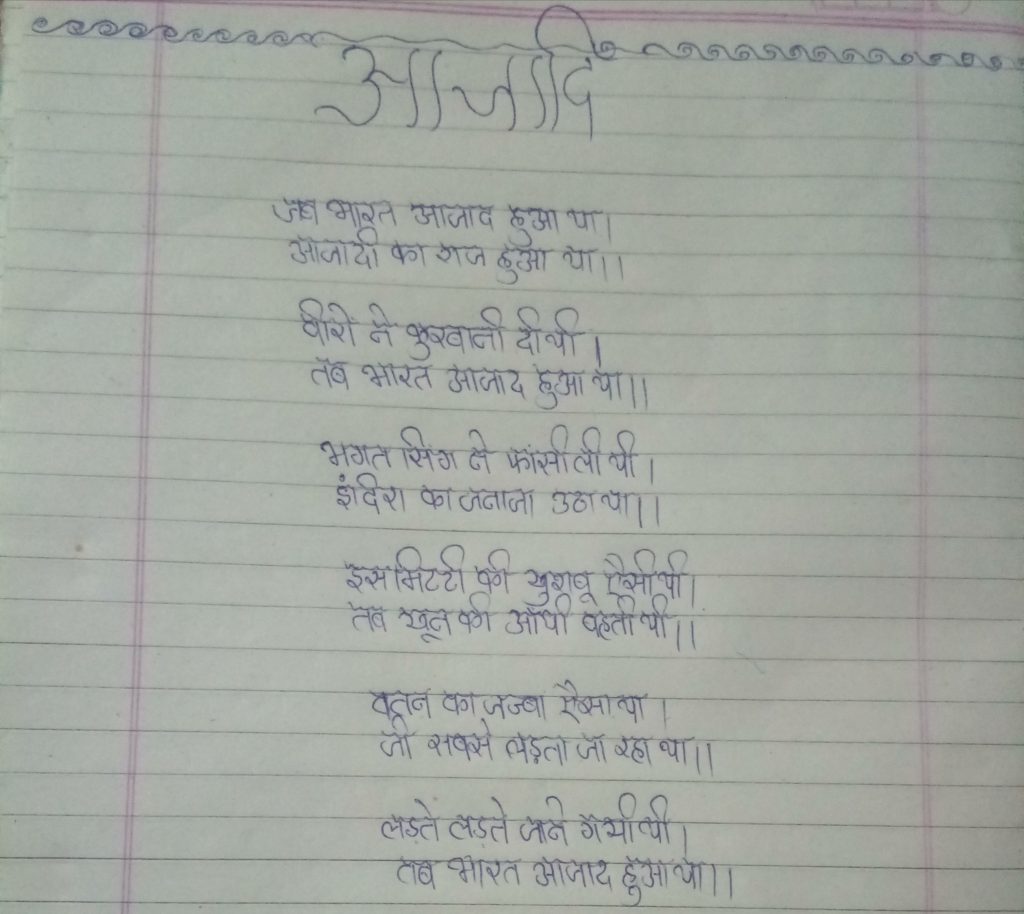 आजादि
जब भारत आजाद हुआ था।
आजादी का राज हुआ था।।
वीरों ने कुरबानी दी थी।
तब भारत आजाद हुआ था।।
भगत सिंग ने फांसी ली थी।
इंदिरा का जनाजा उठा था।।
इस मिटटी की खुशबू ऐसी थी।
तब खून की आँधी बहती थी।।
वतन का जज्बा ऐसा था।
जो सबसे लड़ता जा रहा था।।
लड़ते लड़ते जाने गयी थी।
तब भारत आजाद हुआ था।।